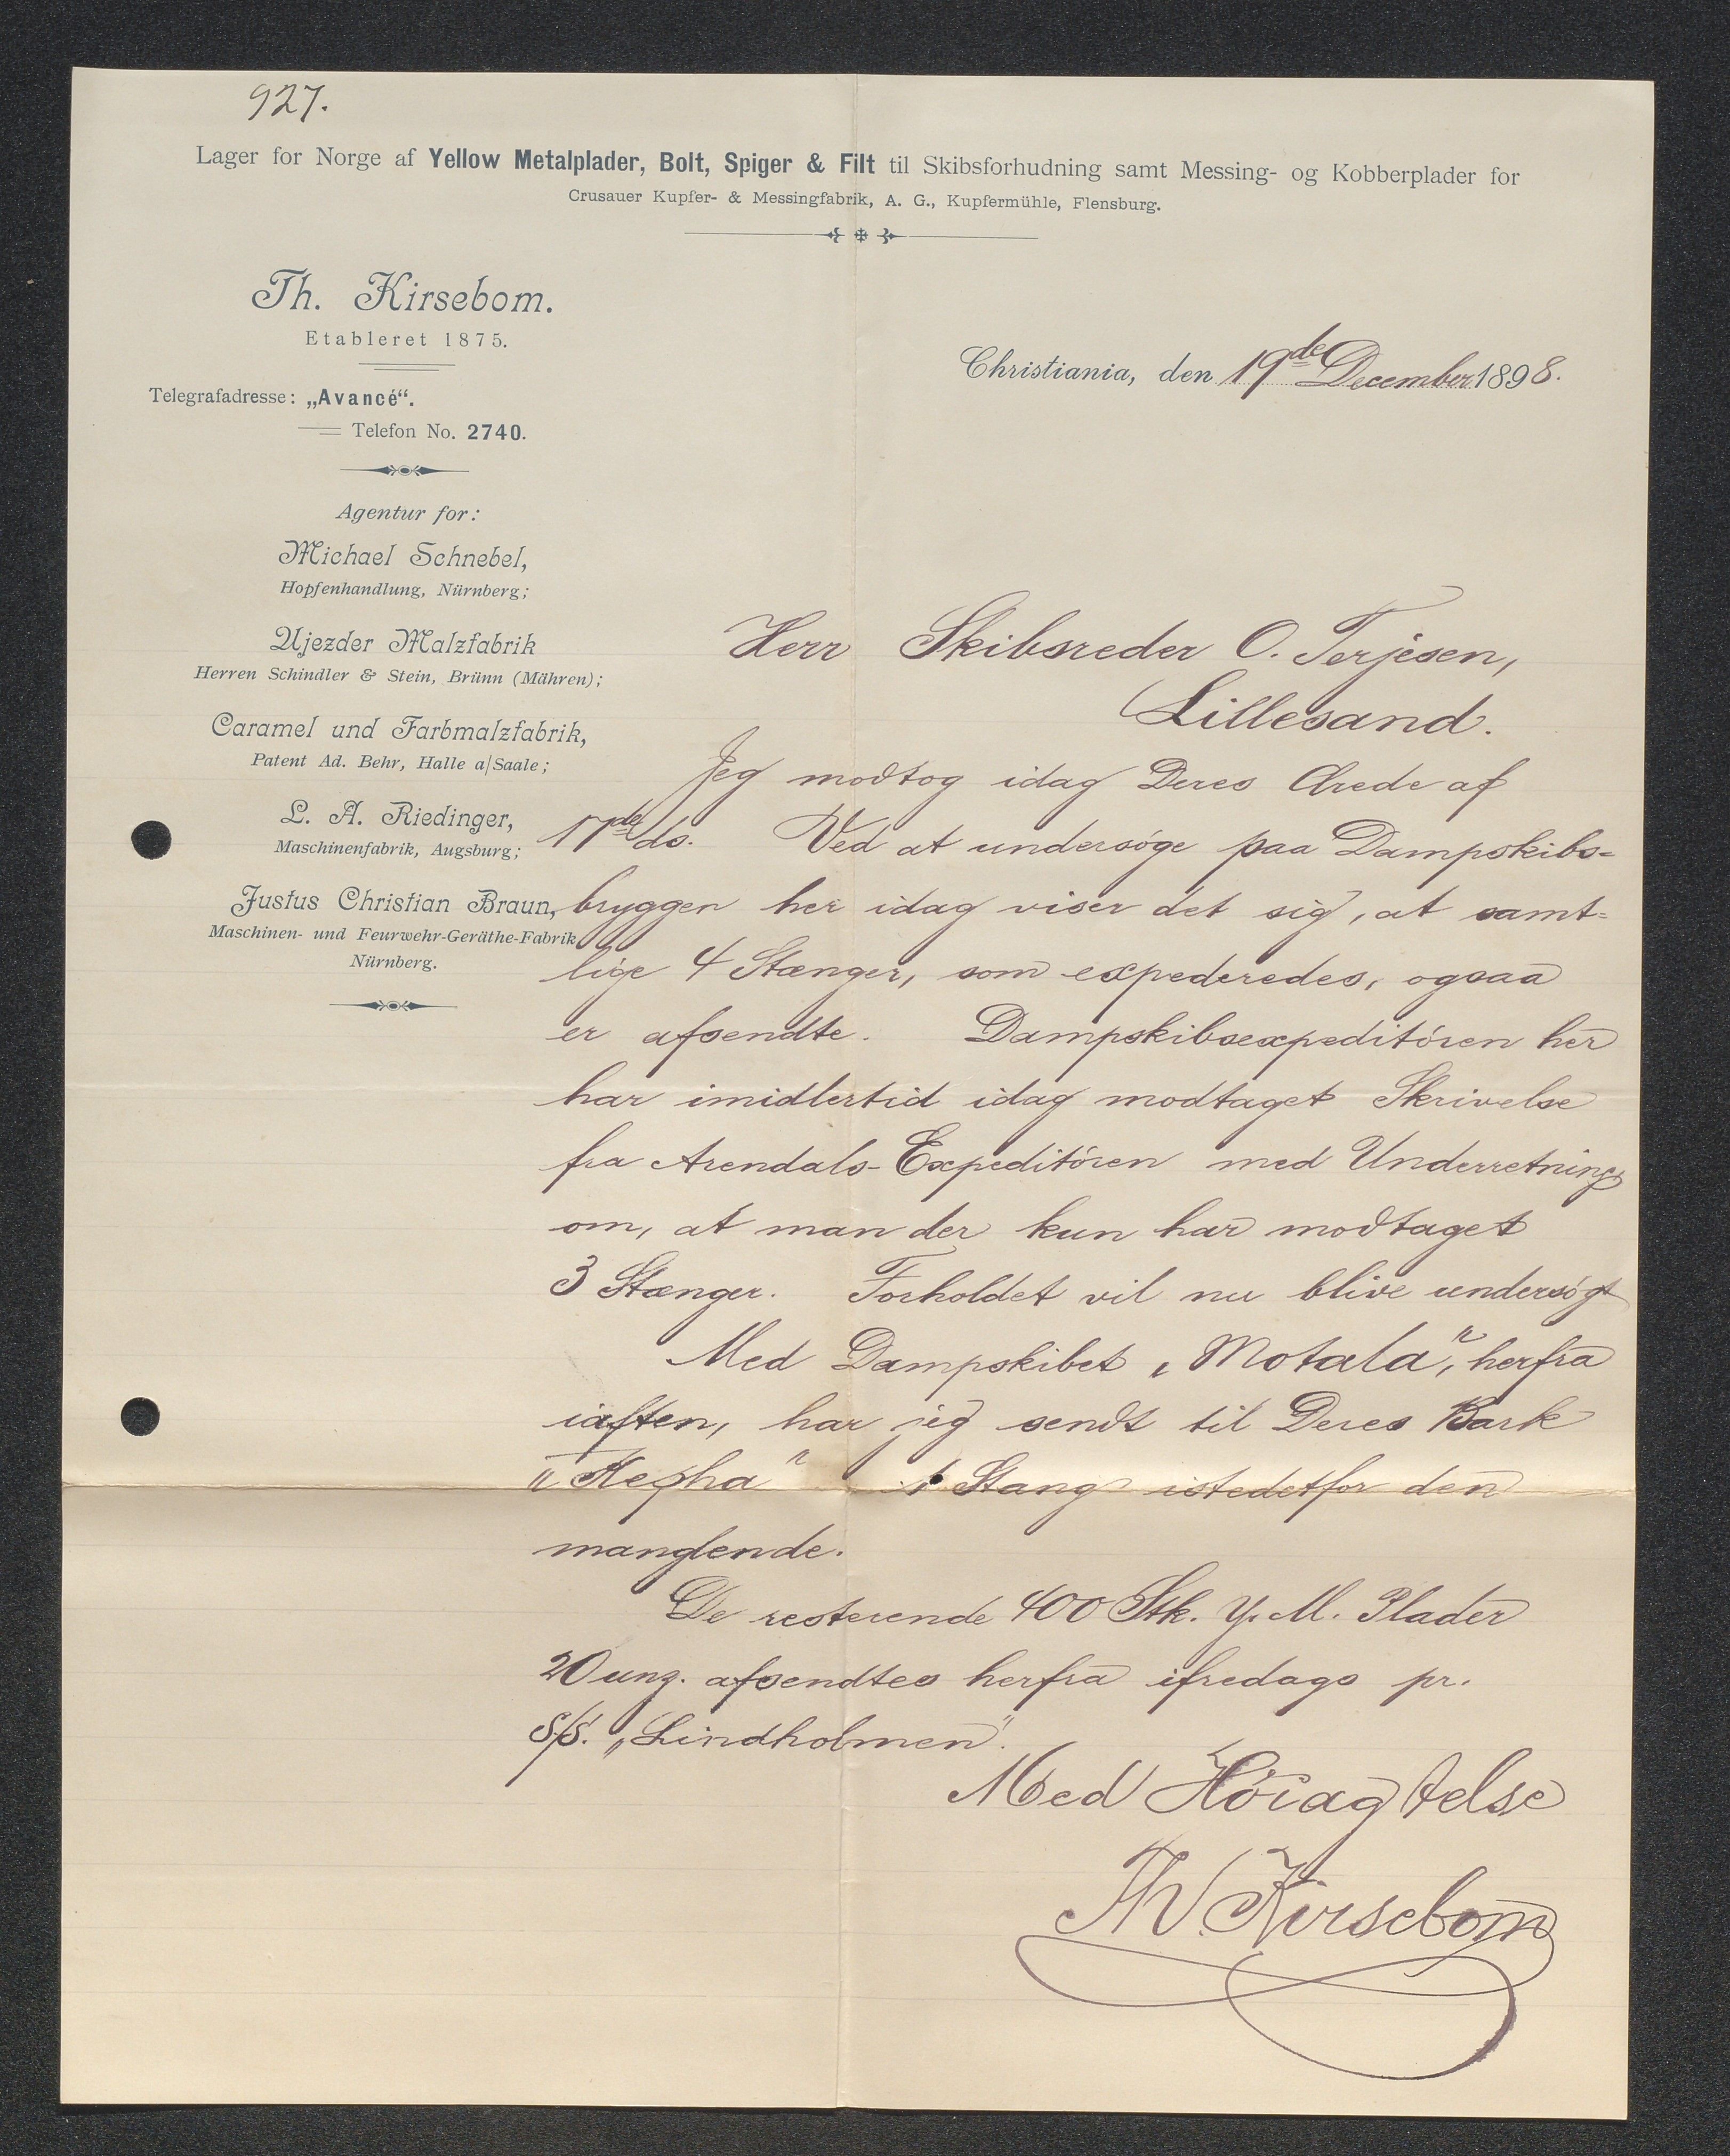 927.
Lager for Norge af Yellow Metalplader, Bolt, Spiger & Filt til Skibsforhudning samt Messing- og Kobberplader for
Crusauer Kupfer- & Messingfabrik, A. G., Kupfermühle, Flensburg.
Th. Kirsebom.
Etableret 1875.
Telegrafadresse: „Avancé“.
Telefon No. 2740.
Agentur for:
Michael Schnebel,
Hopfenhandlung, Nürnberg;
Ujezder Malzfabrik
Herren Schindler & Stein, Brünn (Mähren);
Caramel und Farbmalzfabrik,
Patent Ad. Behr, Halle a/Saale;
L. A. Riedinger,
Maschinenfabrik, Augsburg;
Justus Christian Braun,
Maschinen- und Feurwehr-Geräthe-Fabrik
Nürnberg.
Christiania, den 19de December 1898.
Herr Skibsreder O. Terjesen,
Lillesand.
Jeg modtog idag Deres Ærede af
17de ds. Ved at undersöge paa Dampskibs=
bryggen her idag viser det sig, at samt=
lige 4 Stænger, som expederedes, ogsaa
er afsendte. Dampskibsexpeditören her
har imidlertid idag modtaget Skrivelse
fra Arendals-Expeditören med Underretning
om, at man der kun har modtaget
3 Stænger. Forholdet vil nu blive undersögt
Med Dampskibet „Motala“, herfra
iaften, har jeg sendt til Deres Bark
„Hepha“ 1 Stang istedetfor den
manglende.
De resterende 400 Stk. Y. M. Plader
20 unz. afsendtes herfra ifredags pr.
S/S. „Lindholmen“.
Med Höiagtelse
Th. Kirsebom